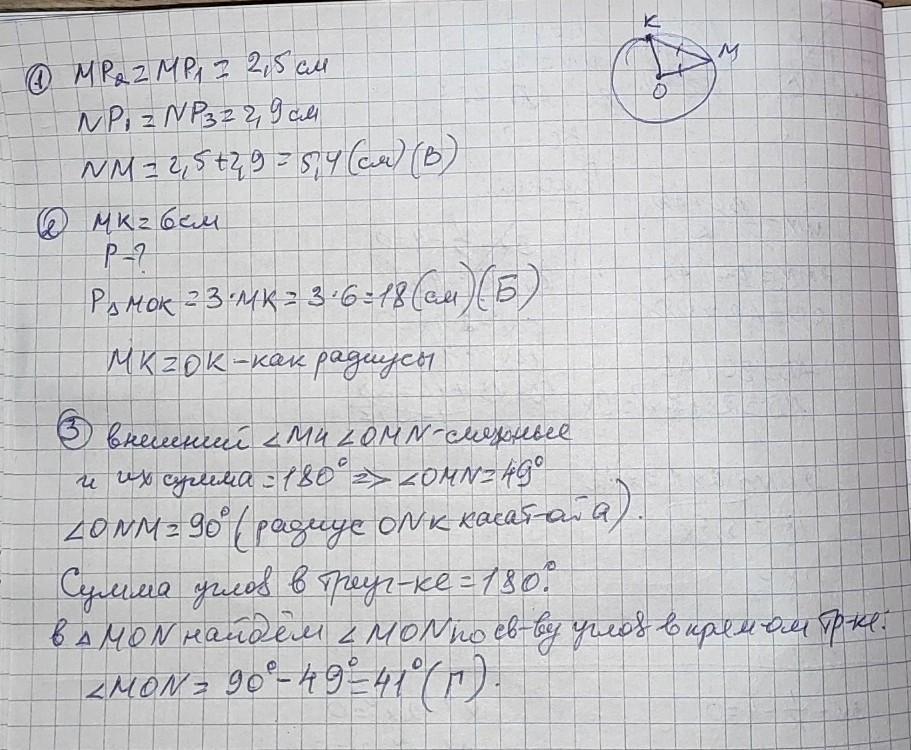 ① MP₂ = MP₁ = 2,5 см
NP₁ = NP₃ = 2,9 см
NM = 2,5 + 2,9 = 5,4 (см) (В)
K
M
O
② MK = 6 см
P - ?
P△MOK = 3 · MK = 3 · 6 = 18 (см) (Б)
MK = OK - как радиусы
③ внешний ∠M и ∠OMN - смежные
и их сумма = 180° => ∠OMN = 49°
∠ONM = 90° (радиус ON к касат-ой a).
Сумма углов в треуг-ке = 180°.
в △MON найдём ∠MON по св-ву углов в прям-ом тр-ке:
∠MON = 90° - 49° = 41° (Г).